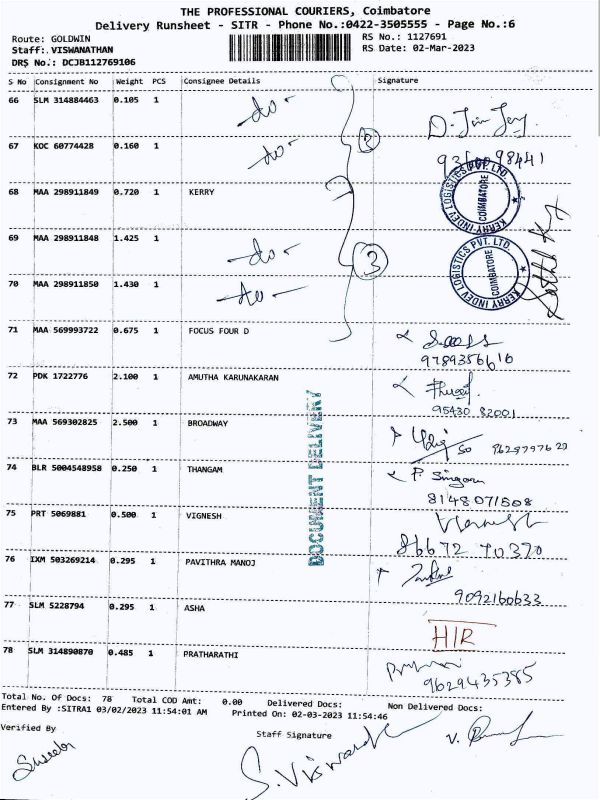 THE PROFESSIONAL COURIERS, Coimbatore
Delivery Runsheet - SITR - Phone No.:0422-3505555 - Page No.:6
Route: GOLDWIN RS No.: 1127691
Staff: VISWANATHAN RS Date: 02-Mar-2023
DRS No.: DCJB112769106
S No Consignment No Weight PCS Consignee Details Signature
66 SLM 314884463 0.105 1 -do-
67 KOC 60774428 0.160 1 -do- 2
68 MAA 298911849 0.720 1 KERRY
KERRY INDEV LOGISTICS PVT. LTD. COIMBATORE
69 MAA 298911848 1.425 1 -do- 3
KERRY INDEV LOGISTICS PVT. LTD. COIMBATORE
70 MAA 298911850 1.430 1 -do-
71 MAA 569993722 0.675 1 FOCUS FOUR D
9789356616
72 PDK 1722776 2.100 1 AMUTHA KARUNAKARAN
95430 82001
73 MAA 569302825 2.500 1 BROADWAY
74 BLR 5004548958 0.250 1 THANGAM
8148071508
75 PRT 5069881 0.500 1 VIGNESH
86672 70370
76 IXM 503269214 0.295 1 PAVITHRA MANOJ
9092160633
77 SLM 5228794 0.295 1 ASHA
H/R
78 SLM 314890870 0.485 1 PRATHARATHI
9629435385
DOCUMENT DELIVERY
Total No. Of Docs: 78 Total COD Amt: 0.00 Delivered Docs: Non Delivered Docs:
Entered By :SITRA1 03/02/2023 11:54:01 AM Printed On: 02-03-2023 11:54:46
Verified By Staff Signature